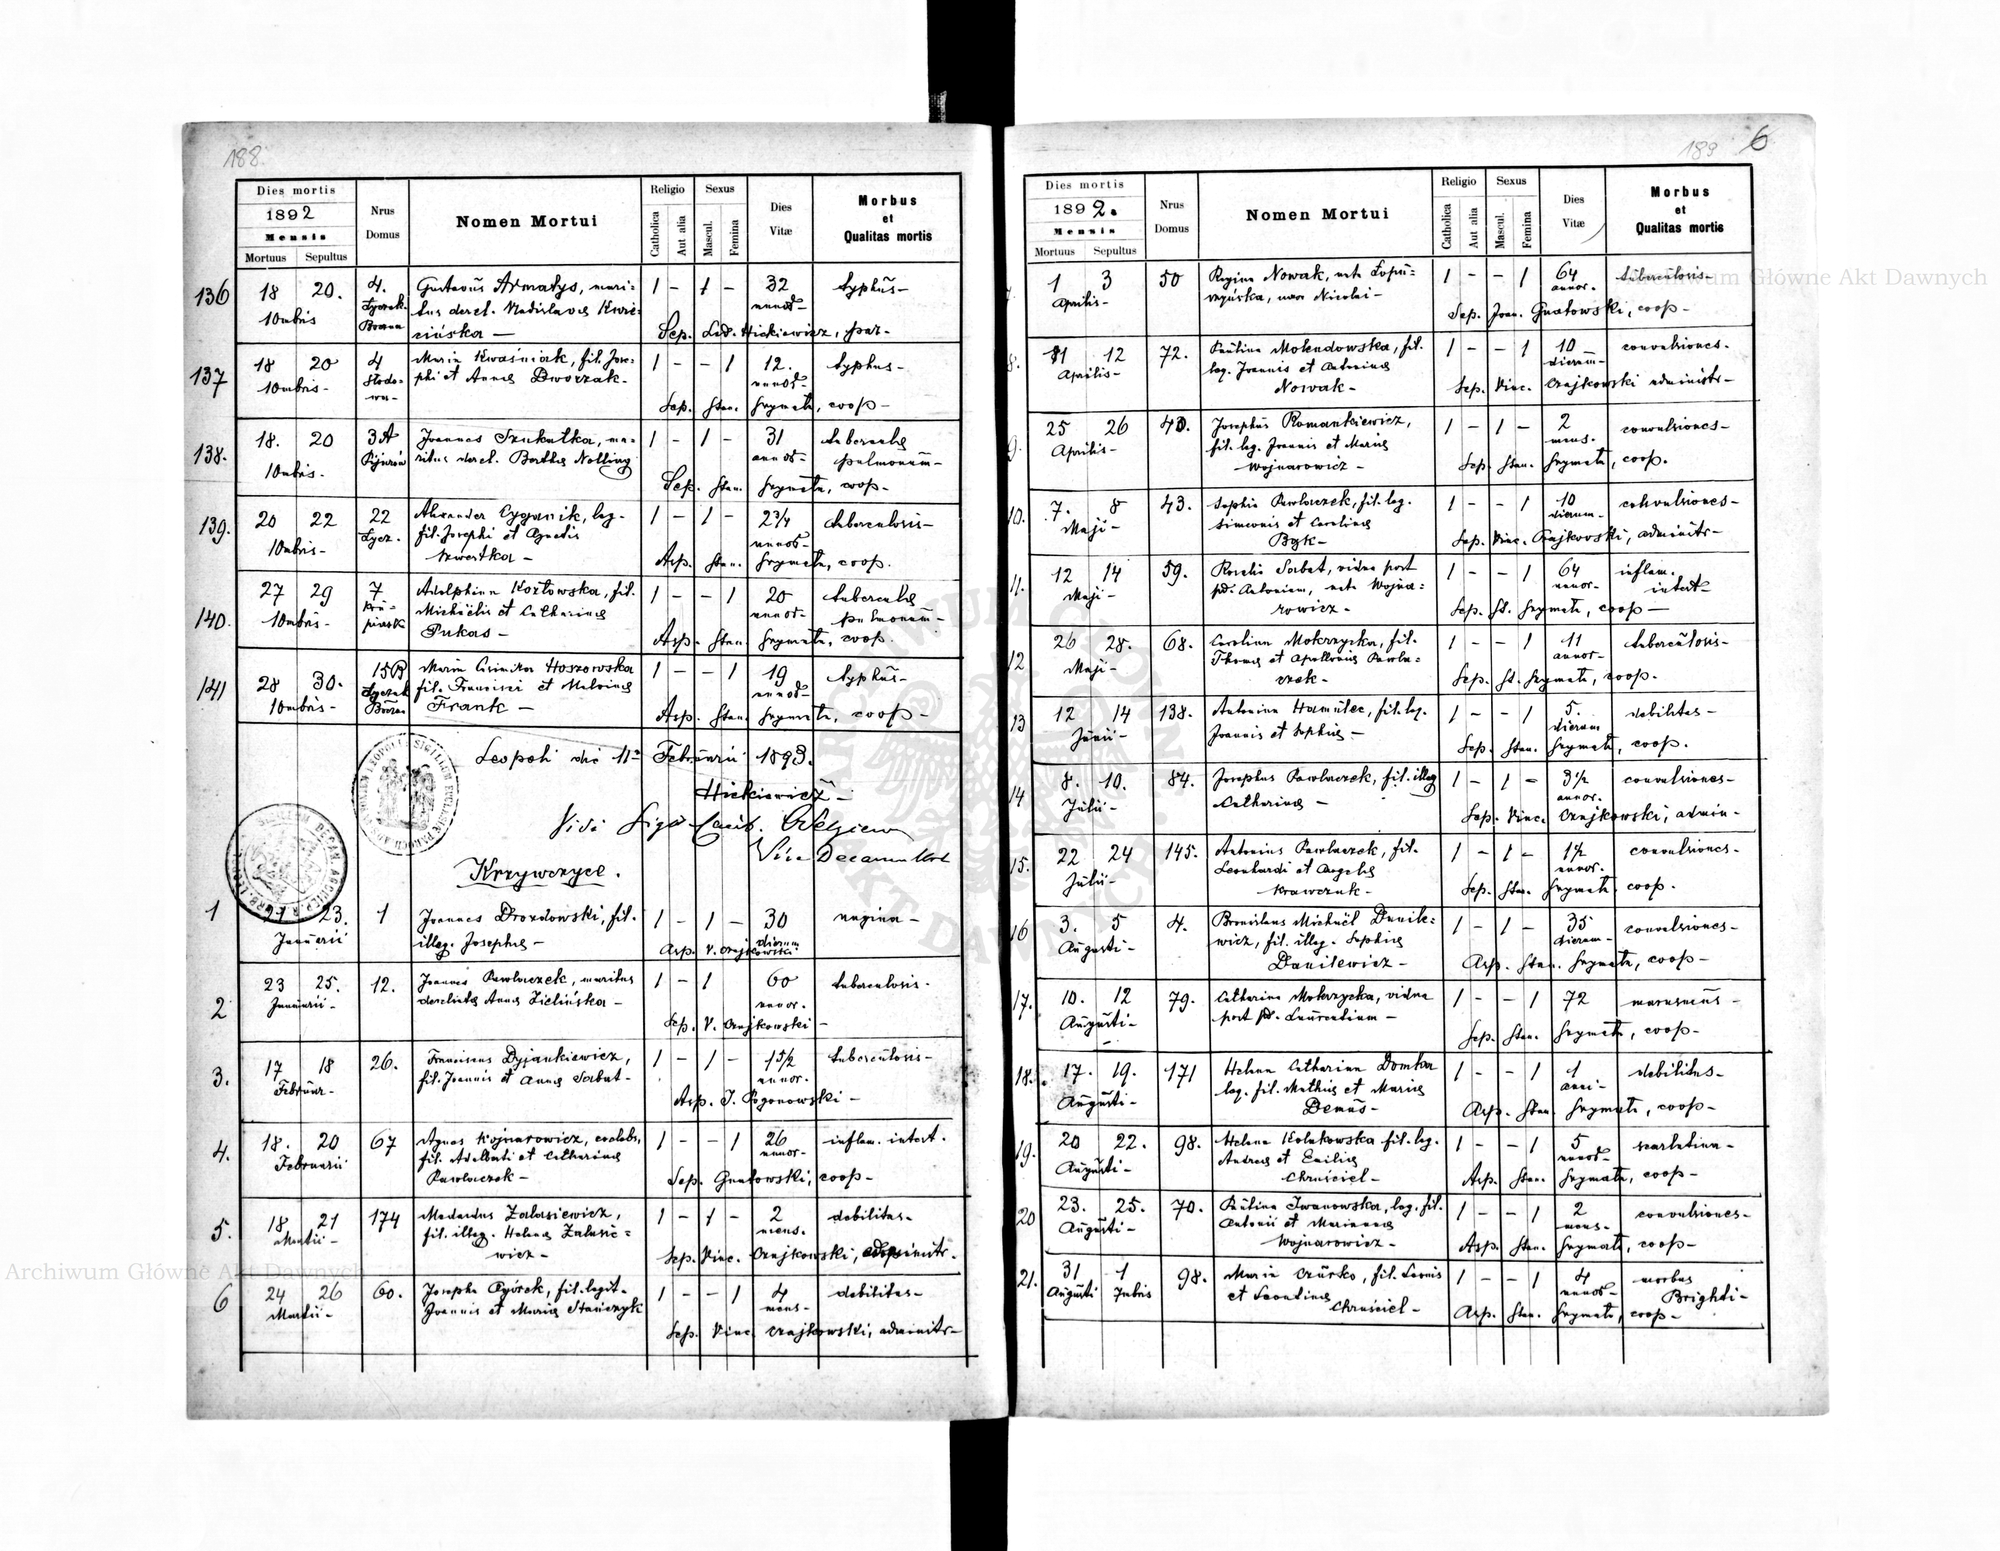 188.
Dies mortis
1892
Mensis
Mortuus Sepultus
Nrus Domus
Nomen Mortui
Religio
Catholica
Aut alia
Sexus
Mascul.
Femina
Dies Vitæ
Morbus
et
Qualitas mortis
136 18 20. 4. Gustavus Armatys, mari- 1 - 1 - 32 typhus-
10mbris
Sep. Lud. Hickiewicz, par.
137 18 20 4 Maria Kwaśniak, fil. Jose- 1 - - 1 12. typhus-
10mbris- phi et Annae Dworzak-
Sep. Stan. Szymala, coop-
138. 18. 20 3A Joannes Szukatka, ma- 1 - 1 - 31
10mbris- ritus derel. Berthae Nolling annor- pulmonum-
Sep. Stan. Szymala, coop-
139. 20 22 22 Alexander Cyganik, leg. 1 - 1 - 2 3/4 tuberculosis-
10mbris- Łycz. fil. Josephi et Agnetis
Asp. Stan. Szymala, coop.
140. 27 29 7 Adolphina Kozłowska, fil. 1 - - 1 20
10mbris- Michaëlis et Catharinae annor- pulmonum-
Pukas-
Asp. Stan. Szymala, coop.
141 28 30. 15B Maria Casimira Hoszowska 1 - - 1 19 typhus-
10mbris- fil. Francisci et Malvinae
Frank-
Asp. Stan. Szymala, coop-
Leopoli die 11 Februarii 1893.
Hickiewicz-
Krzywczyce.
1 23. 1 Joannes Drozdowski, fil. 1 - 1 - 30 angina-
Januarii illeg. Josephae- dierum
Asp. V. Czajkowski
2 23 25. 12. Joannes Pawluczek, maritus 1 - 1 60 tuberculosis.
Januarii- derelictus Annae Zielińska- annor.
Sep. V. Czajkowski-
3. 17 18 26. Franciscus Dyjankiewicz, 1 - 1 - 1 5/2 tuberculosis-
Februar- fil. Joannis et Annae Sabat- annor.
Asp. J. Pogonowski-
4. 18. 20 67 Agnes Wojnarowicz, coelebs, 1 - - 1 26 inflam. intest.
Februarii fil. Adalberti et Catharinae annor-
Pawluczek-
Sep. Gnatowski, coop-
5. 18 21 174 Medardus Zalasiewicz, 1 - 1 - 2 debilitas-
Martii- fil. illeg. Helenae Zalasie- mens.
wicz-
Sep. Vinc. Czajkowski, administr.
6 24 26 60. Josepha Pyórek, fil. legit. 1 - - 1 4 debilitas-
Martii- Joannis et Mariae Stańczyk mens-
Sep. Vinc. Czajkowski, administr-
189 6
Dies mortis
1892.
Mensis
Mortuus Sepultus
Nrus Domus
Nomen Mortui
Religio
Catholica
Aut alia
Sexus
Mascul.
Femina
Dies Vitæ
Morbus
et
Qualitas mortis
1 3 50 Regina Nowak, nata Łopu- 1 - - 1 64 tuberculosis-
Aprilis- szyńska, uxor Nicolai- annor.
Sep. Joan. Gnatowski, coop-
8. 11 12 72. Paulina Mokudowska, fil. 1 - - 1 10 convulsiones-
Aprilis- leg. Joannis et Antoninae dierum-
Nowak-
Sep. Vinc. Czajkowski administr-
9. 25 26 40. Josephus Romankiewicz, 1 - 1 - 2 convulsiones-
Aprilis- fil. leg. Joannis et Mariae mens.
Wojnarowicz-
Sep. Stan. Szymala, coop.
10. 7. 8 43. Sophia Pawluczek, fil. leg. 1 - - 1 10 convulsiones-
Maji- Simeonis et Carolinae dierum-
Bąk-
Sep. Vinc. Czajkowski, administr-
11. 12 14 59. Rosalia Sabat, vidua post 1 - - 1 64 inflam.
Maji- Antonium, nata Wojna- annor- intest-
rowicz-
Sep. St. Szymala, coop-
12 26 28. 68. Carolina Mokrzycka, fil. 1 - - 1 11 tuberculosis-
Maji- Thomae et Apolloniae Pawlu- annor-
czek-
Sep. St. Szymala, coop.
13 12 14 138. Antonina Hamulec, fil. leg. 1 - - 1 5. debilitas-
Junii- Joannis et Sophiae- dierum
Sep. Stan. Szymala, coop.
14 8. 10. 84. Josephus Pawluczek, fil. illeg 1 - 1 - 3 1/2 convulsiones-
Julii- Catharinae- annor.
Sep. Vinc. Czajkowski, admin-
15. 22 24 145. Antonius Pawluczek, fil. 1 - 1 - 1 1/2 convulsiones-
Julii- Leonhardi et Angelae annor.
Krawczuk-
Sep. Stan. Szymala coop.
16 3. 5 4. Bronislaus Michaël Danile- 1 - 1 - 35 convulsiones-
Augusti- wicz, fil. illeg. Sophiae dierum-
Danilewicz-
Asp. Stan. Szymala, coop-
17. 10. 12 79. Catharina Mokrzycka, vidua 1 - - 1 72 marasmus-
Augusti- post Laurentium-
Sep. Stan. Szymala, coop-
18. 17. 19. 171 Helena Catharina Domka 1 - - 1 1 debilitas-
Augusti- leg. fil. Mathiae et Mariae anni-
Demus-
Asp. Stan. Szymala, coop-
19. 20 22. 98. Helena Kolakowska fil. leg. 1 - - 1 5 scarlatina-
Augusti- Andreae et Emiliae annor-
Chruściel-
Asp. Stan. Szymala, coop-
20 23. 25. 70. Paulina Iwanowska, leg. fil. 1 - - 1 2 convulsiones-
Augusti- Antonii et Mariannae mens-
Wojnarowicz-
Asp. Stan. Szymala, coop-
21. 31 1 98. Maria Czurko, fil. Leonis 1 - - 1 4 morbus
Augusti 7mbris et Leontinae annor- Brighti-
Chruściel-
Asp. Stan. Szymala, coop-
Archiwum Główne Akt Dawnych
Archiwum Główne Akt Dawnych